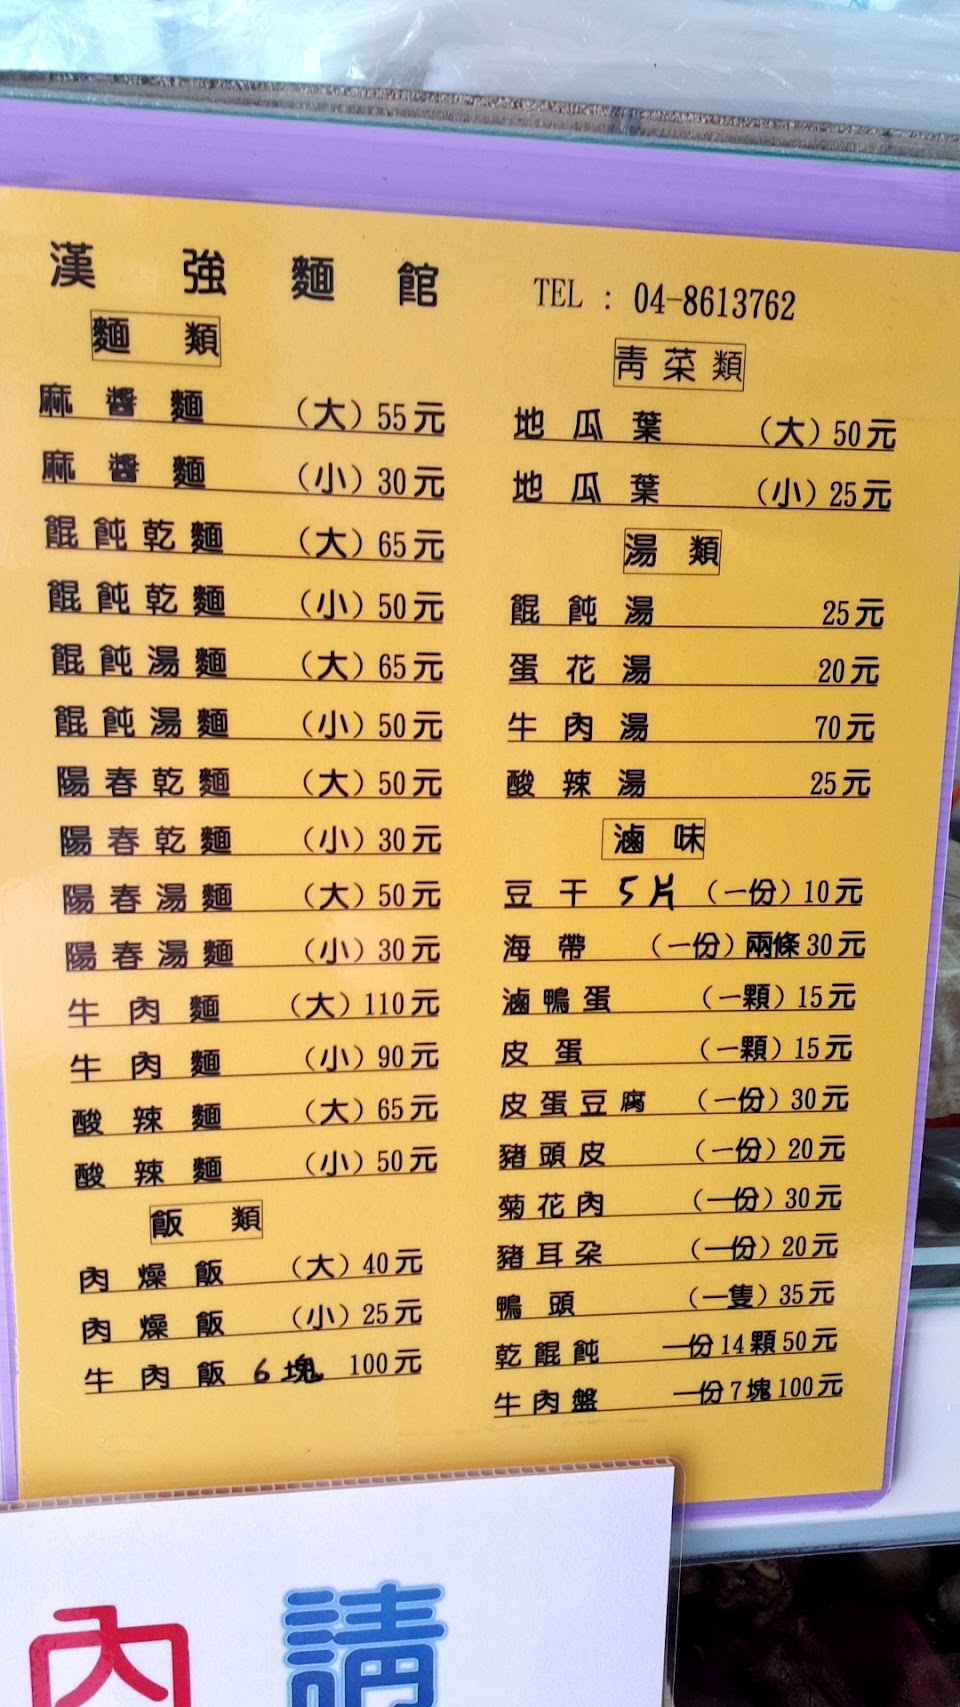 漢強麵館
TEL : 04-8613762
麵類
麻醬麵 (大) 55元
麻醬麵 (小) 30元
餛飩乾麵 (大) 65元
餛飩乾麵 (小) 50元
餛飩湯麵 (大) 65元
餛飩湯麵 (小) 50元
陽春乾麵 (大) 50元
陽春乾麵 (小) 30元
陽春湯麵 (大) 50元
陽春湯麵 (小) 30元
牛肉麵 (大) 110元
牛肉麵 (小) 90元
酸辣麵 (大) 65元
酸辣麵 (小) 50元
飯類
肉燥飯 (大) 40元
肉燥飯 (小) 25元
牛肉飯 6塊 100元
青菜類
地瓜葉 (大) 50元
地瓜葉 (小) 25元
湯類
餛飩湯 25元
蛋花湯 20元
牛肉湯 70元
酸辣湯 25元
滷味
豆干 5片 (一份) 10元
海帶 (一份) 兩條 30元
滷鴨蛋 (一顆) 15元
皮蛋 (一顆) 15元
皮蛋豆腐 (一份) 30元
豬頭皮 (一份) 20元
菊花肉 (一份) 30元
豬耳朶 (一份) 20元
鴨頭 (一隻) 35元
乾餛飩 一份14顆50元
牛肉盤 一份7塊100元
內請